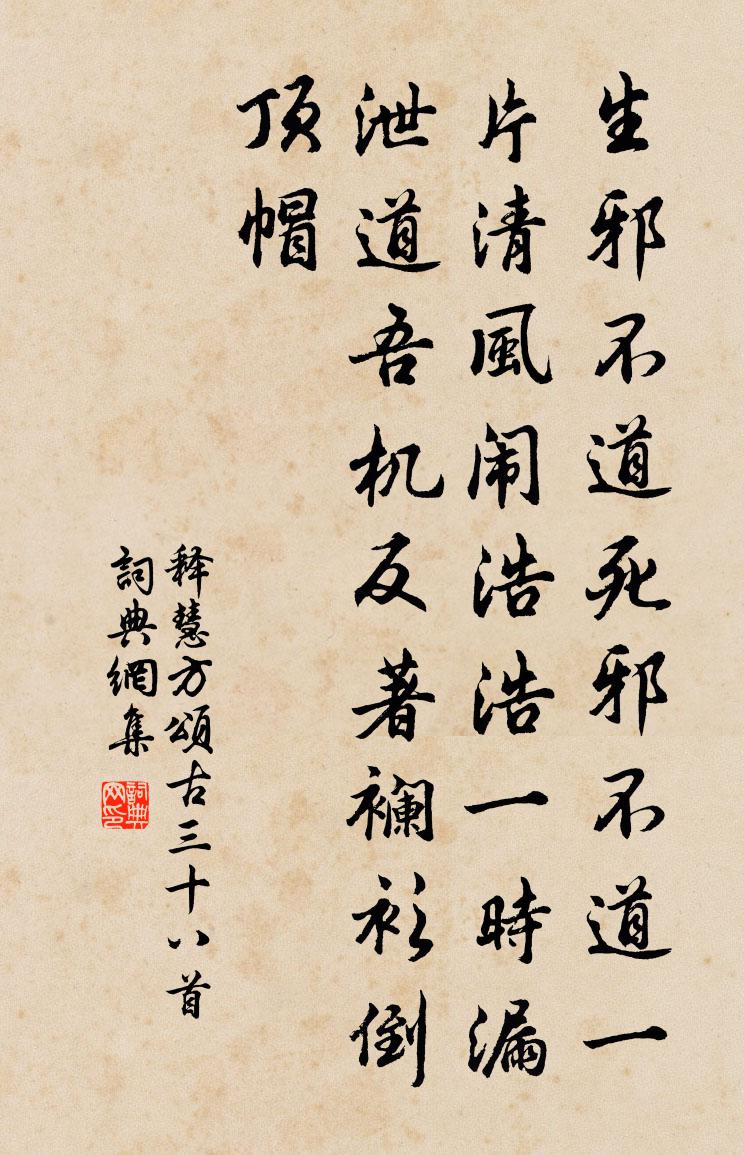 生邪不道死邪不道一
片清風闹浩浩一時漏
泄道吾机反著襕衫倒
顶帽
释慧方頌古三十八首
詞典網集
詞典网印